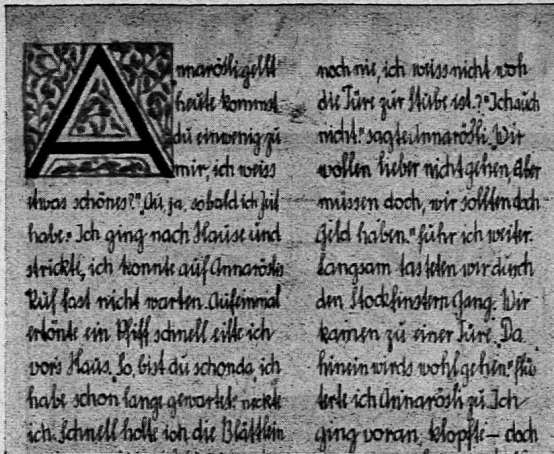 Annarösli gellt
heute kommst
du ein wenig zu
mir, ich weiss
etwas schönes?" „Au, ja, sobald ich Zeit
habe." Ich ging nach Hause und
strickte, ich konnte auf Annaröslis
Ruf fast nicht warten. Auf einmal
ertönte ein Pfiff schnell eilte ich
vors Haus. „So, bist du schon da, ich
habe schon lange gewartet." neckte
ich. Schnell holte ich die Blättlein
noch nie, ich weiss nicht woh
die Türe zur Stube ist.?" „Ich auch
nicht." sagte Annarösli. „Wir
wollen lieber nicht gehen, aber
müssen doch, wir sollten doch
Geld haben." fuhr ich weiter.
Langsam tasteten wir durch
den stockfinstern Gang. Wir
kamen zu einer Türe. „Da
hinein wirds wohl gehen." flüs
terte ich Annarösli zu. Ich
ging voran, klopfte – doch